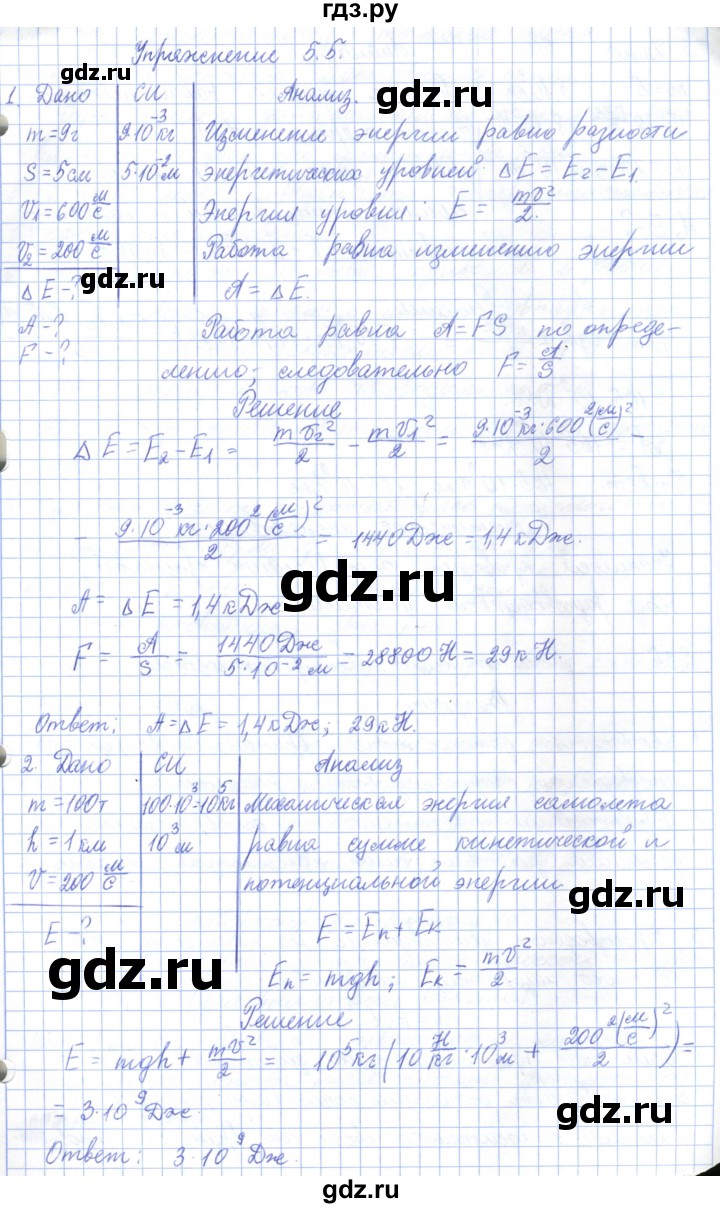 гдз.ру
Упражнение 5.5.
1. Дано СИ Анализ.
m=9г 9·10⁻³кг Изменение энергии равно разности
S=5см 5·10⁻²м энергетических уровней ΔE=E₂−E₁
V₁=600 м/с Энергия уровня: E = mv²/2.
V₂=200 м/с Работа равна изменению энергии
ΔE−? A=ΔE.
A−? Работа равна A=FS по опреде-
F−? лению; следовательно F = A/S
Решение
ΔE=E₂−E₁ = mv₂²/2 − mv₁²/2 = 9·10⁻³кг·600²(м/с)²/2 −
− 9·10⁻³кг·200²(м/с)²/2 = 1440Дж = 1,4кДж.
A = ΔE = 1,4кДж
F = A/S = 1440Дж/5·10⁻²м = 28800Н = 29кН.
Ответ: A=ΔE=1,4кДж; 29кН.
2. Дано СИ Анализ
m=100т 100·10³=10⁵кг Механическая энергия самолета
h=1км 10³м равна сумме кинетической и
V=200 м/с потенциальной энергии
E−? E=Eп+Eк
Eп=mgh; Eк= mv²/2.
Решение
E = mgh + mv²/2 = 10⁵кг(10 Н/кг·10³м + 200²(м/с)²/2)=
= 3·10⁹Дж.
Ответ: 3·10⁹Дж.
gdz.ru
gdz.ru
gdz.ru
gdz.ru
gdz.ru
gdz.ru
gdz.ru
gdz.ru
gdz.ru
gdz.ru
gdz.ru